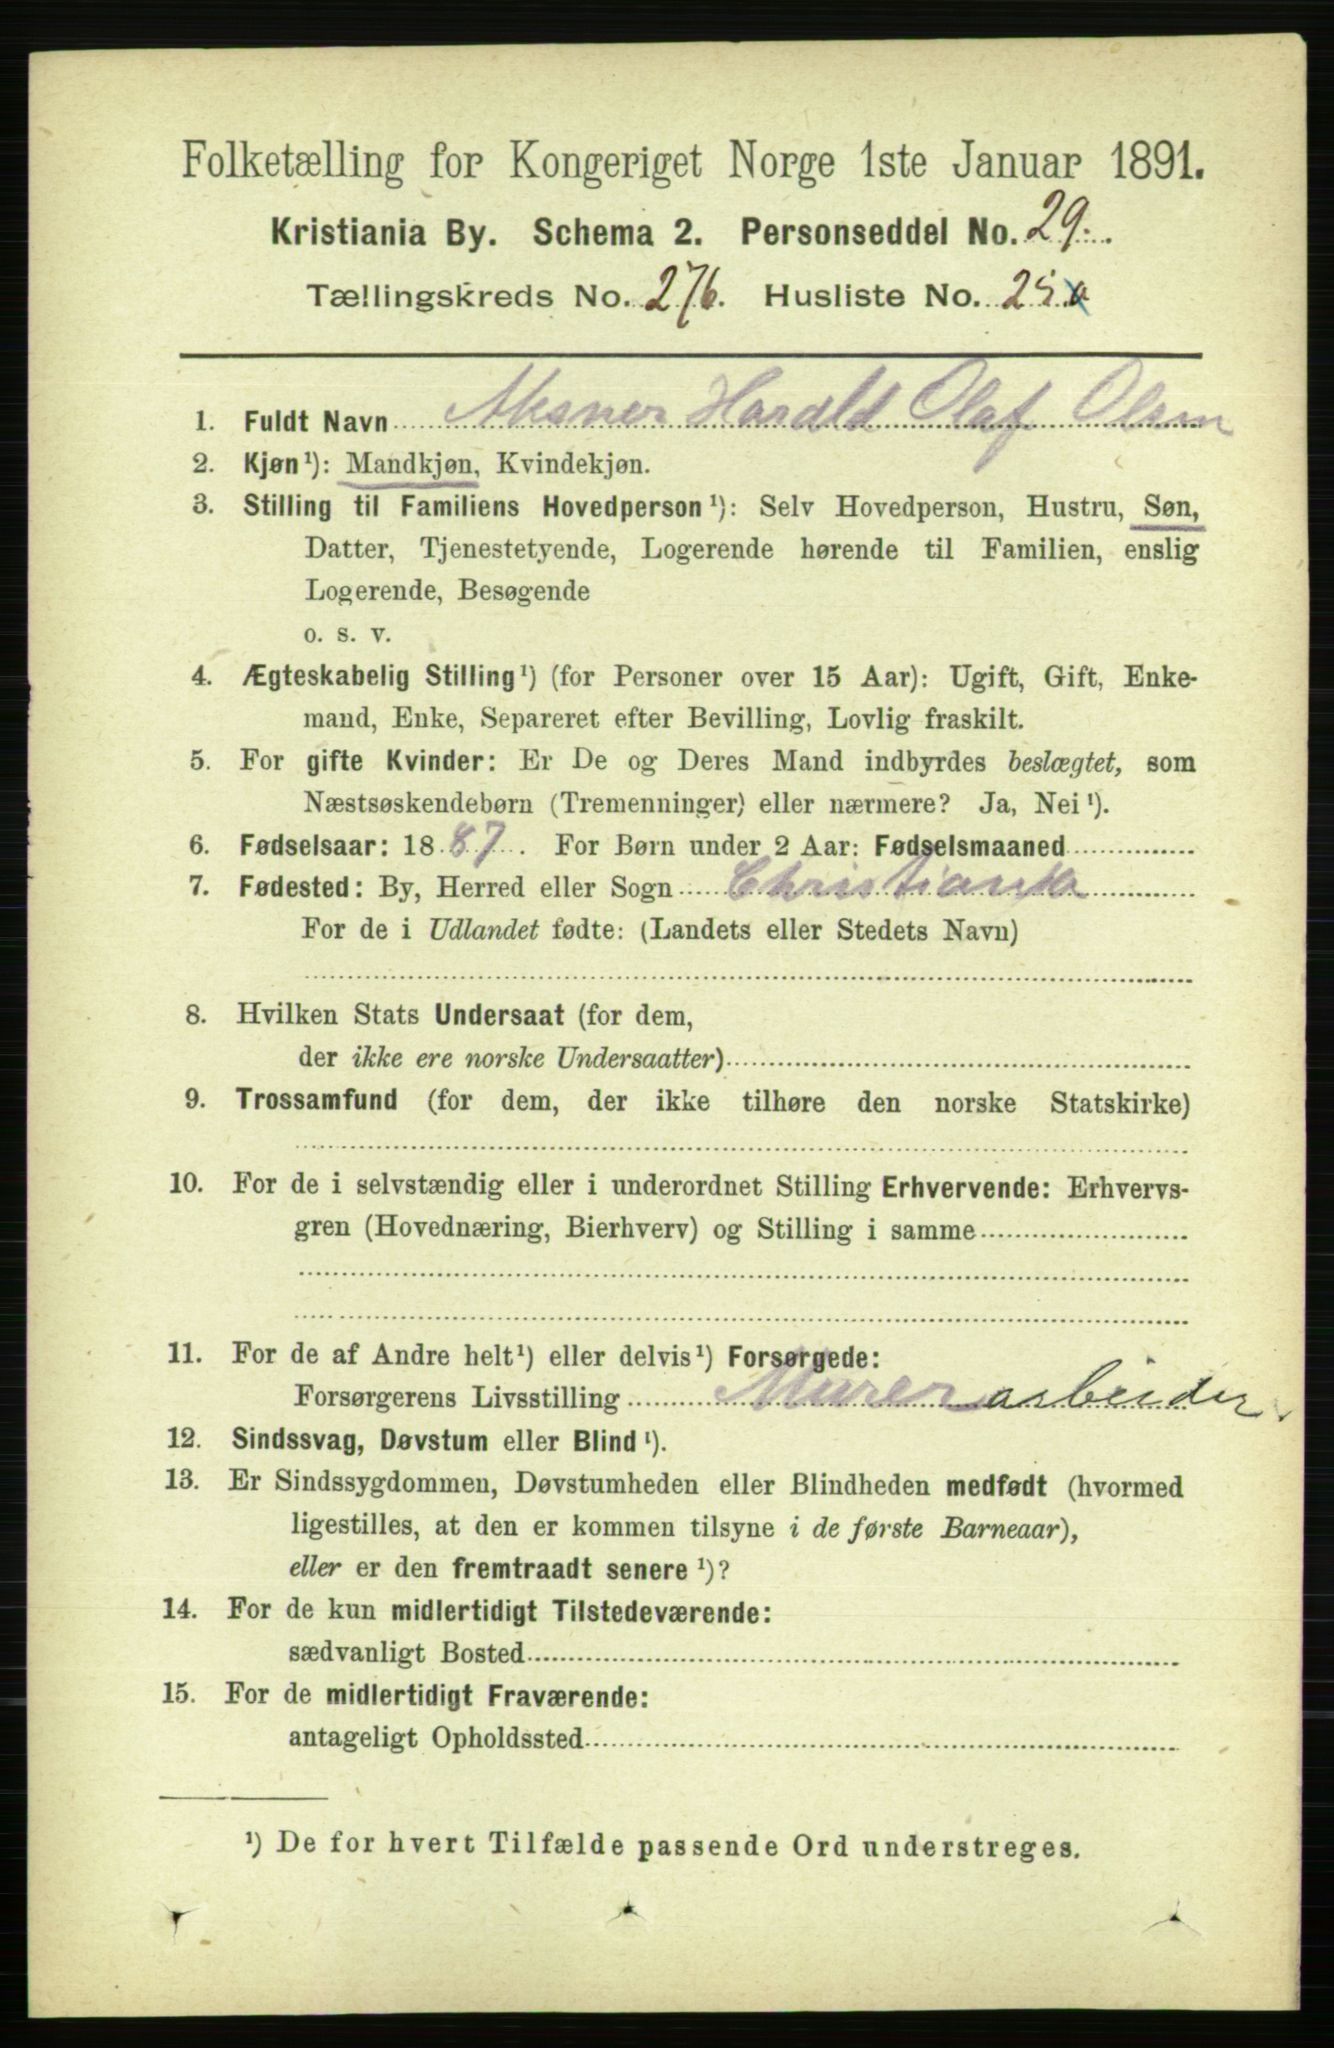 Folketælling for Kongeriget Norge 1ste Januar 1891.
Kristiania By. Schema 2. Personseddel No. 29.
Tællingskreds No. 276. Husliste No. 25 a
1. Fuldt Navn Harald Olaf Olsen
2. Kjøn¹): Mandkjøn, Kvindekjøn.
3. Stilling til Familiens Hovedperson¹): Selv Hovedperson, Hustru, Søn,
Datter, Tjenestetyende, Logerende hørende til Familien, enslig
Logerende, Besøgende
o. s. v.
4. Ægteskabelig Stilling¹) (for Personer over 15 Aar): Ugift, Gift, Enke-
mand, Enke, Separeret efter Bevilling, Lovlig fraskilt.
5. For gifte Kvinder: Er De og Deres Mand indbyrdes beslægtet, som
Næstsøskendebørn (Tremenninger) eller nærmere? Ja, Nei¹).
6. Fødselsaar: 1887. For Børn under 2 Aar: Fødselsmaaned
7. Fødested: By, Herred eller Sogn Christiania
For de i Udlandet fødte: (Landets eller Stedets Navn)
8. Hvilken Stats Undersaat (for dem,
der ikke ere norske Undersaatter)
9. Trossamfund (for dem, der ikke tilhøre den norske Statskirke)
10. For de i selvstændig eller i underordnet Stilling Erhvervende: Erhvervs-
gren (Hovednæring, Bierhverv) og Stilling i samme
11. For de af Andre helt¹) eller delvis¹) Forsørgede:
Forsørgerens Livsstilling Murerarbeider
12. Sindssvag, Døvstum eller Blind¹).
13. Er Sindssygdommen, Døvstumheden eller Blindheden medfødt (hvormed
ligestilles, at den er kommen tilsyne i de første Barneaar),
eller er den fremtraadt senere¹)?
14. For de kun midlertidigt Tilstedeværende:
sædvanligt Bosted
15. For de midlertidigt Fraværende:
antageligt Opholdssted
¹) De for hvert Tilfælde passende Ord understreges.